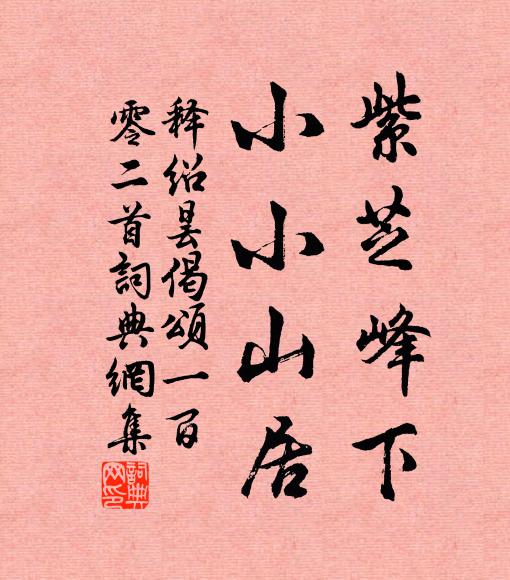 紫芝峰下
小小山居
释绍昙偈頌一百
零二首詞典網集
詞典网印